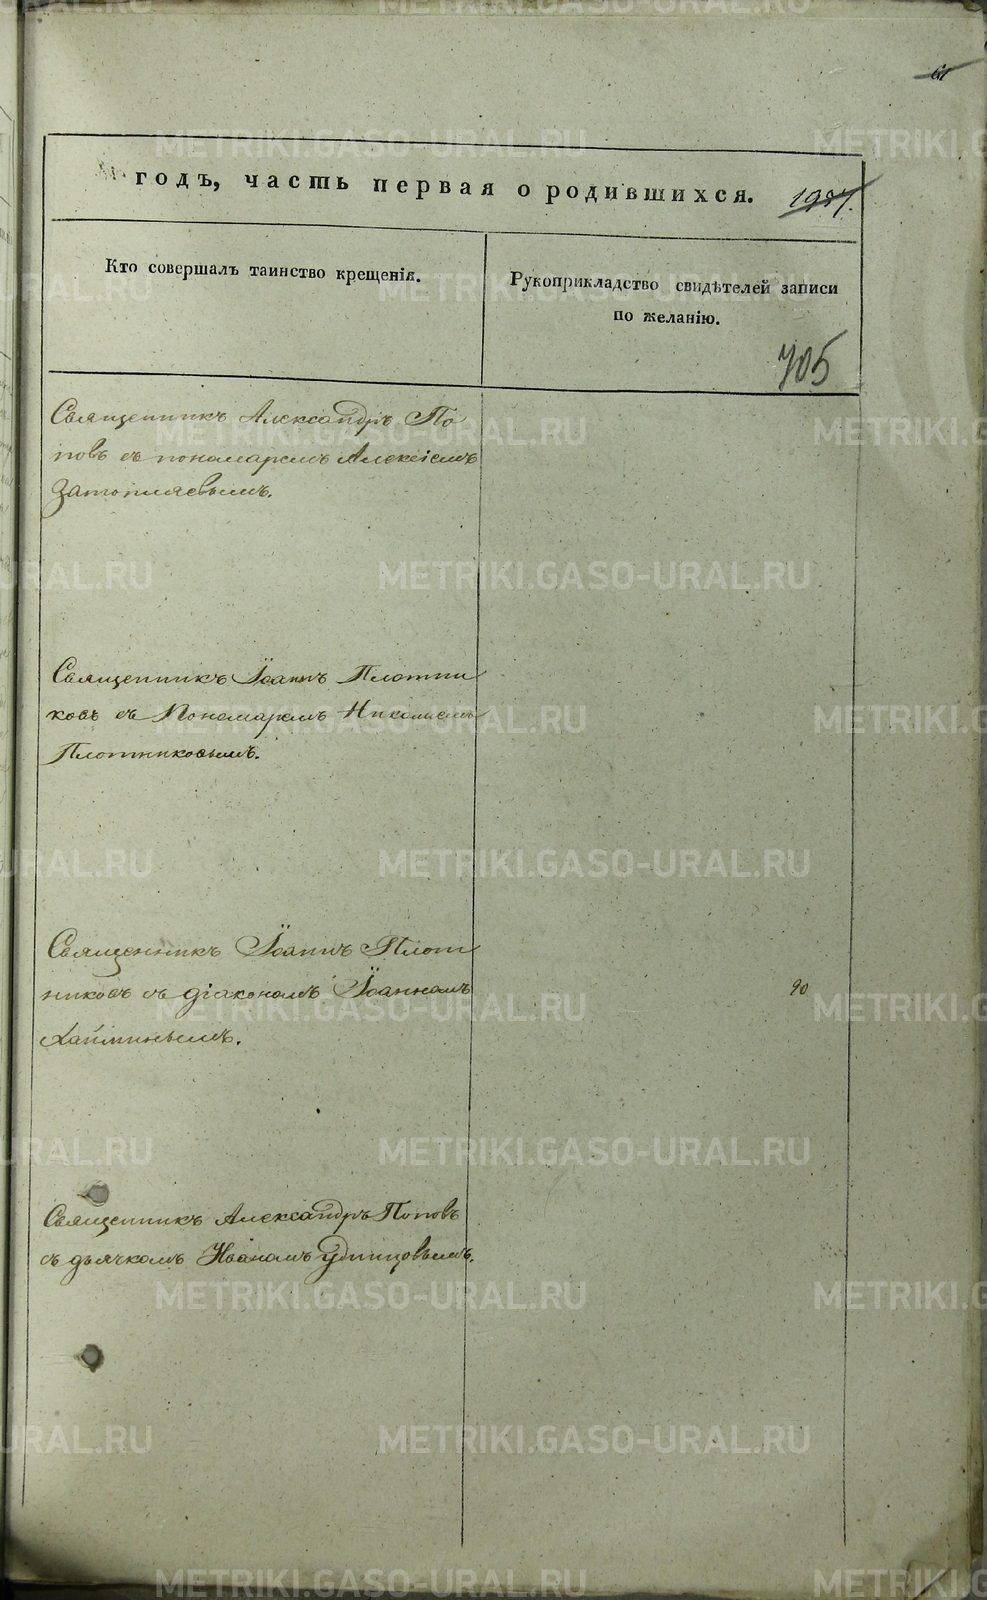 61
годъ, часть первая о родившихся. 1987.
Кто совершалъ таинство крещенія.
Рукоприкладство свидѣтелей записи
по желанію.
705
Священникъ Александръ По
повъ съ пономаремъ Алексіемъ
Затопляевымъ.
Священникъ Іоаннъ Плотни
ковъ съ Пономаремъ Николаемъ
Плотниковымъ.
Священникъ Іоаннъ Плот
никовъ съ діакономъ Іоанномъ
Хайминымъ.
90
Священникъ Александръ Поповъ
съ дьячкомъ Иваномъ Удинцовымъ.
METRIKI.GASO-URAL.RU